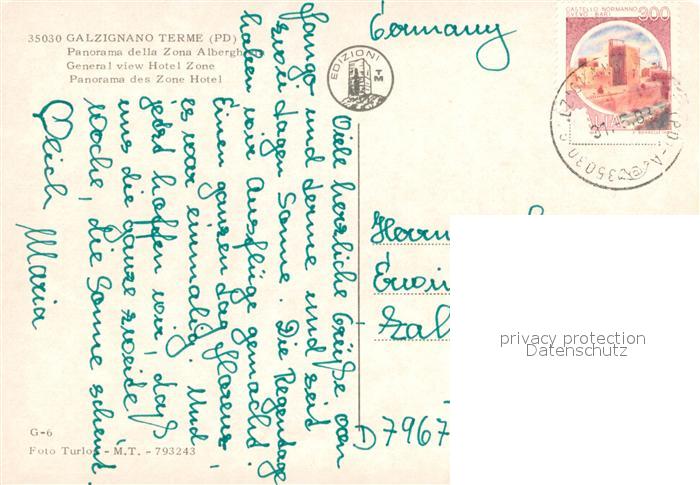 35030 GALZIGNANO TERME (PD)
Panorama della Zona Albergh
General view Hotel Zone
Panorama des Zone Hotel
EDIZIONI
TM
Germany
CASTELLO NORMANNO
SVEVO - BARI
300
Viele herzliche Grüße von
Fango und Terme und seit
zwei Tagen Sonne. Die Regentage
haben wir Ausflüge gemacht.
Einen ganzen Tag Florenz
es war einmalig. Und
jetzt hoffen wir, daß
uns die ganze zweite
Woche, die Sonne scheint.
Maria
Herrn
D 7967
G-6
Foto Turlo - M.T. - 793243
privacy protection
Datenschutz